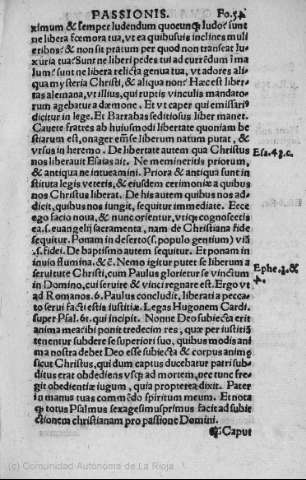 PASSIONIS. Fo.54
ximum & semper ludendum quocunq; ludo? sunt
ne libera fœmora tua, vt ea quibusuis inclines muli
eribus? & non sit pratum per quod non transeat lu
xuria tua? Sunt ne liberi pedes tui ad currẽdum ĩ ma
lum? sunt ne libera genua tua, vt adores ali
qua mysteria Christi, & aliqua non? Hæc est liber
tas alemana, vt illius, qui ruptis vinculis mandato-
agebatur a dæmone. Et vt caper qui emissari9
dicitur in lege. Et Barrabas seditiosus liber manet.
Cauete fratres ab huiusmodi libertate quoniam be
stiarum est, onager em̃ se liberum natum putat, &
vrsus in heremo. De libertate autem qua Christus
nos liberauit Esaias ait. Ne memineritis priorum,
& antiqua ne intueamini. Priora & antiqua sunt in
stituta legis veteris, & eiusdem cerimoniæ a quibus
nos Christus liberat. De his autem quibus nos ad-
dicit, quibus nos iungit, sequitur immediate. Ecce
ego facio noua, & nunc orientur, vtiq; cognoscetis
ea. s. euangelij sacramenta, nam de Christiana fide
sequitur. Ponam in deserto (s. populo gentium) viã
.s. fidei. De baptismo autem sequitur. Et ponam in
inuio flumina. &c̃. Nemo igitur putet se liberum a
seruitute Christi, cum Paulus glorietur se vinctum
in Domino, cui seruire & vinci regnare est. Ergo vt
ad Romanos. 6. Paulus concludit, liberati a pecca-
to serui facti estis iustitiæ. Legas Hugonem Cardi.
super Psal. 61. qui incipit. Nonne Deo subiecta erit
anima mea? ibi ponit tredecim res, quæ per iustitiã
tenentur subdere se superiori suo, quibus modis ani
ma nostra debet Deo esse subiecta & corpus animę
sicut Christus, qui dum captus ducebatur patri sub-
ditus erat obediens vsq; ad mortem, nec tunc fre-
git obedientiæ iugum, quia propterea dixit. Pater
in manus tuas commẽdo spiritum meum. Et nota
q̃ totus Psalmus sexagesimusprimus facit ad subie
ctionem christianam pro passione Domini.
Caput
Esa.43.c.
Ephe.3.&
4.
(c) Comunidad Autónoma de La Rioja